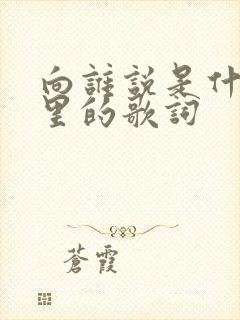 向誰説是什
里的歌詞
蒼霞